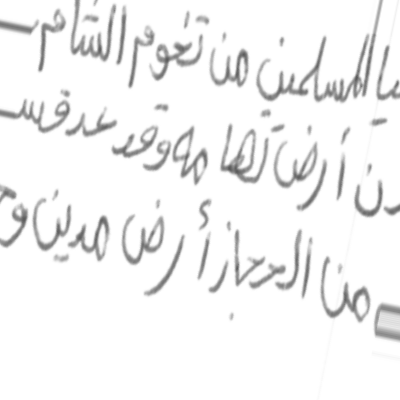 المسلمين من تخوم الشام
دن أرض تهامه وقد عد قسـ
من الحجاز أرض مدين و